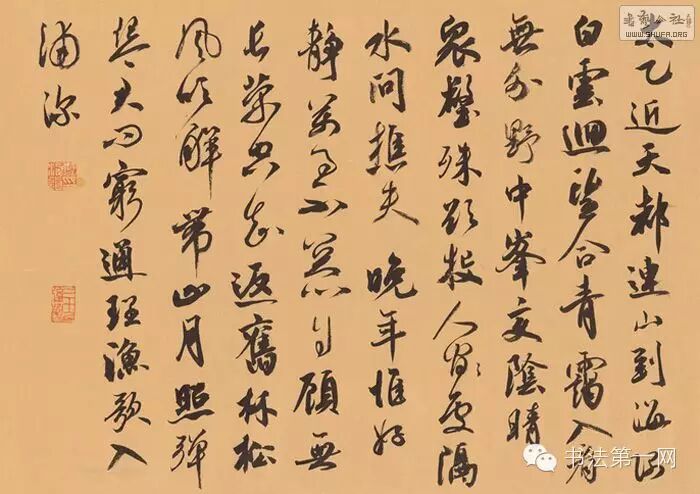 太乙近天都連山到海隅
白雲迴望合青靄入看
無分野中峯変陰晴
衆壑殊欲投人宿處隔
水問樵夫 晚年惟好
静萬事不關心自顧無
長策空知返舊林松
風吹解帶山月照彈
琴君問窮通理漁歌入
浦深
WWW.SHUFA.ORG
书法第一网